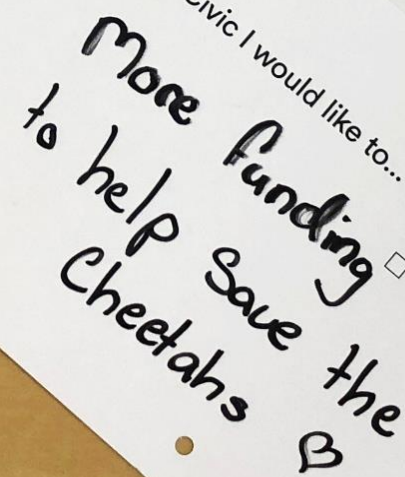 Civic I would like to...
More funding
to help save the
Cheetahs ♡